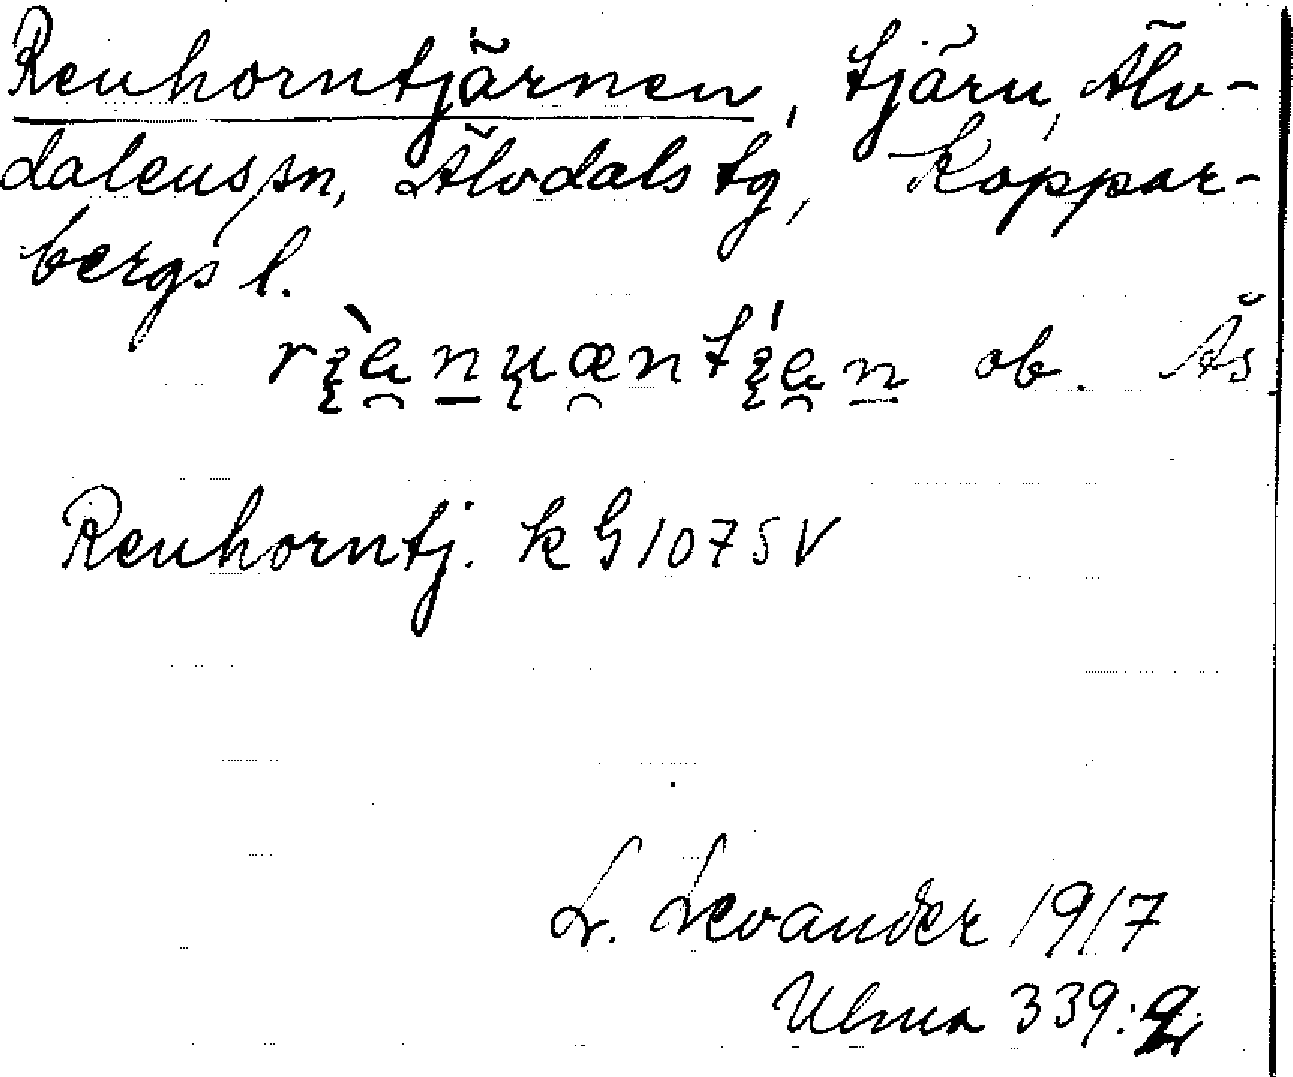 Renhorntjärnen, tjärn, Älv-
dalens sn, Älvdals tg, Koppar-
bergs l.
ob. Ås
Renhorntj. k G 107 SV
L. Levander 1917
Ulma 339:2